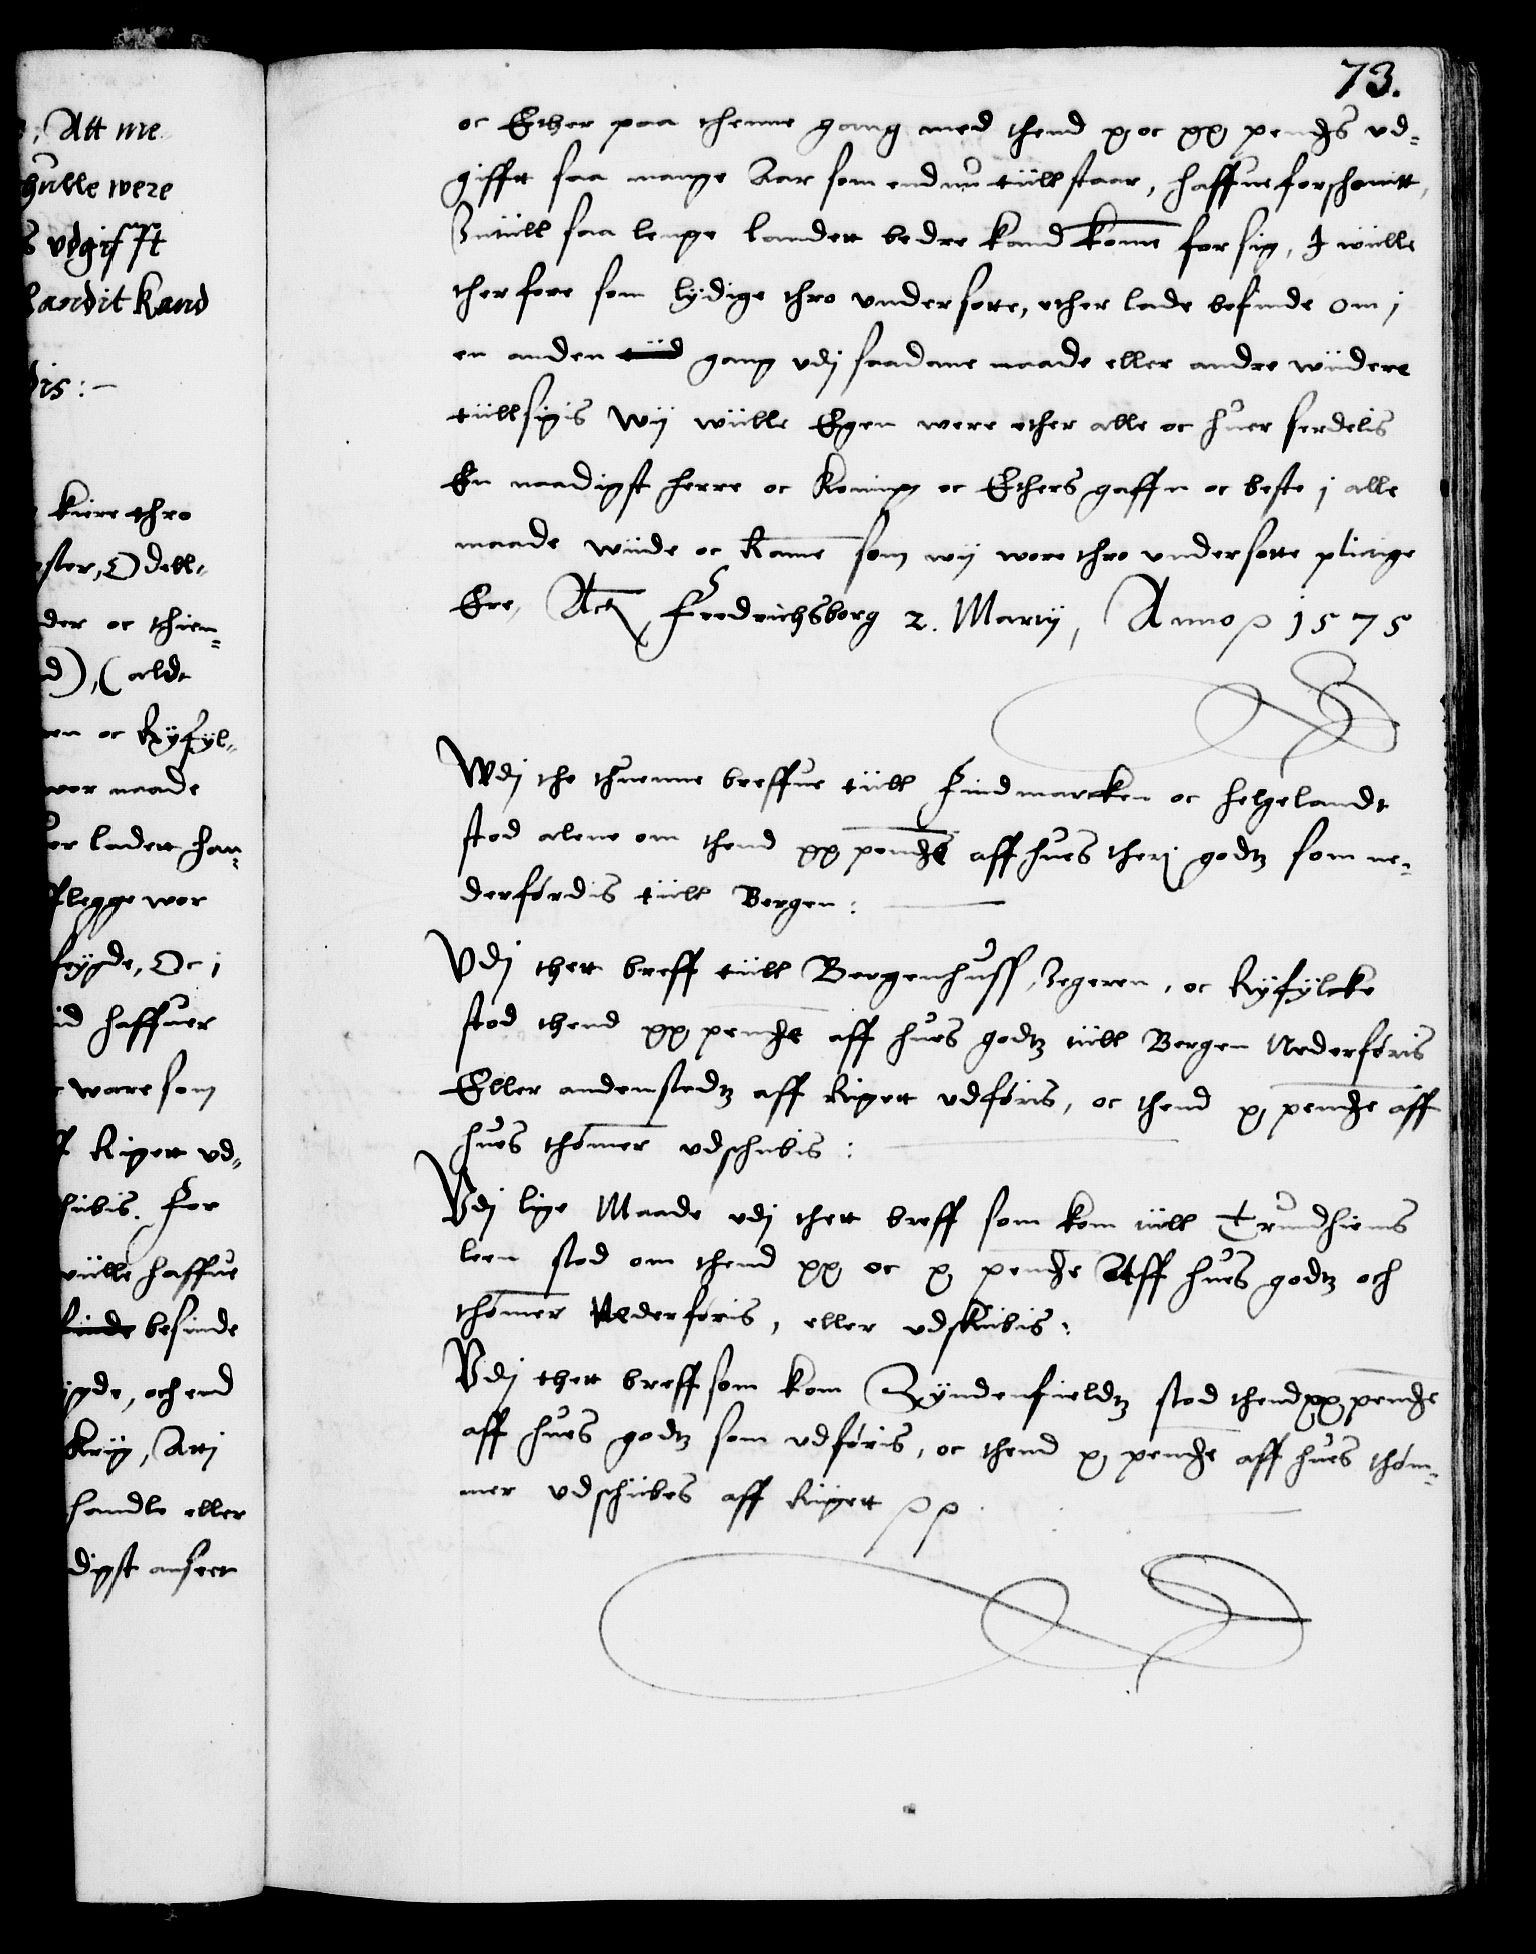 73.
; Att me
hulle were
s vdgifft
Landit kand
dis:-
kiere thro
øster, Odell-
der oc thien-
d), (aldt
en oc Ryfyl-
wor naade
er ladett han-
flegge wor
feigde, Oc i
id haffuer
ware som
ff Riigett vd-
hibis. For
wille haffue
befinde
igde, och end
Kriig, Att i
handle eller
digst anseet
oc Ether paa thenne gang med thend x, oc xx, pendgs vd-
gifftt saa mange Aar som endnu tiill staar, haffue forschonitt,
Indtiill saa lenge landett bedre kand kome for sig, I wiille
ther fore som lydige thro vndersotte, ether lade befinde om i
en anden tiid gang vdj saadanne maade eller andre wiidere
tiillsigis Wij wiille Egen were ether alle oc huer serdelis
En naadigst herre oc Koning oc Ethers gaffn oc beste i alle
maade wiide oc Rame som wij wore thro vndersotte plictige
Ere, Actt Fredrichsborg 2. Martij, Anno p 1575
Wdj the thuenne breffue tiill Findmarcken oc Helgelandt
stod alene om thend xx pendge aff hues therj godtz som ne-
derfördis tiill Bergen:
Vdj thett breff tiill Bergenhuss, Iegeren, oc Ryfylcke
stod thend xx, pendge aff hues godtz tiill Bergen Nederföris
Eller andenstedtz aff Riigett vdföris, oc thend x, pendge aff
hues thömer vdschibis:
Vdj lige Maade vdj thett breff som kom tiill Trundhiems
leen stod om thend xx, oc x, pendge Aff hues godtz och
thömer Nederföris, eller vdskibis:
Vdj thett breff som kom Syndenfieldtz stod thend xx, pendge
aff hues godtz som vdföris, oc thend x, pendge aff hues thöm-
mer vdschibes aff Riigett pp